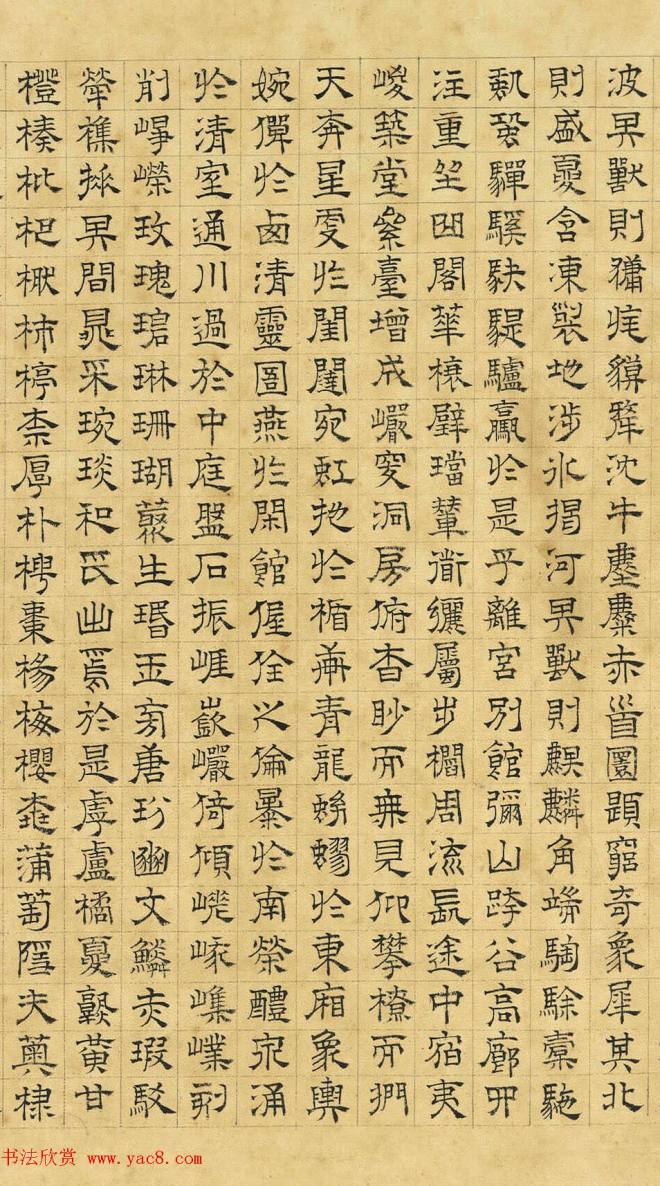 波其獸則㺎旄貘犛沈牛麈麋赤首圜題窮奇象犀其北
則盛夏含凍裂地涉冰揭河其獸則麒麟角端騊駼橐駞
蛩蛩驒騱駃騠驢驘於是乎離宮別館彌山跨谷高廊四
注重坐曲閣華榱璧璫輦道纚屬步櫩周流長途中宿夷
嵕築堂絫臺增成巖窔洞房俯杳眇而無見仰攀橑而捫
天奔星更於閨闥宛虹扡於楯軒青龍蚴蟉於東廂象輿
婉僤於西清靈圄燕於閑館偓佺之倫暴於南榮醴泉涌
於清室通川過於中庭盤石振崖嶔巖倚傾嵯峨㠍嶫刻
削崢嶸玫瑰碧琳珊瑚叢生瑉玉旁唐玢豳文鱗赤瑕駁
犖雜臿其間鼂采琬琰和氏出焉於是乎盧橘夏孰黃甘
橙楱枇杷橪柿楟柰厚朴梬棗楊梅櫻桃蒲萄隱夫薁棣
书法欣赏 www.yac8.com